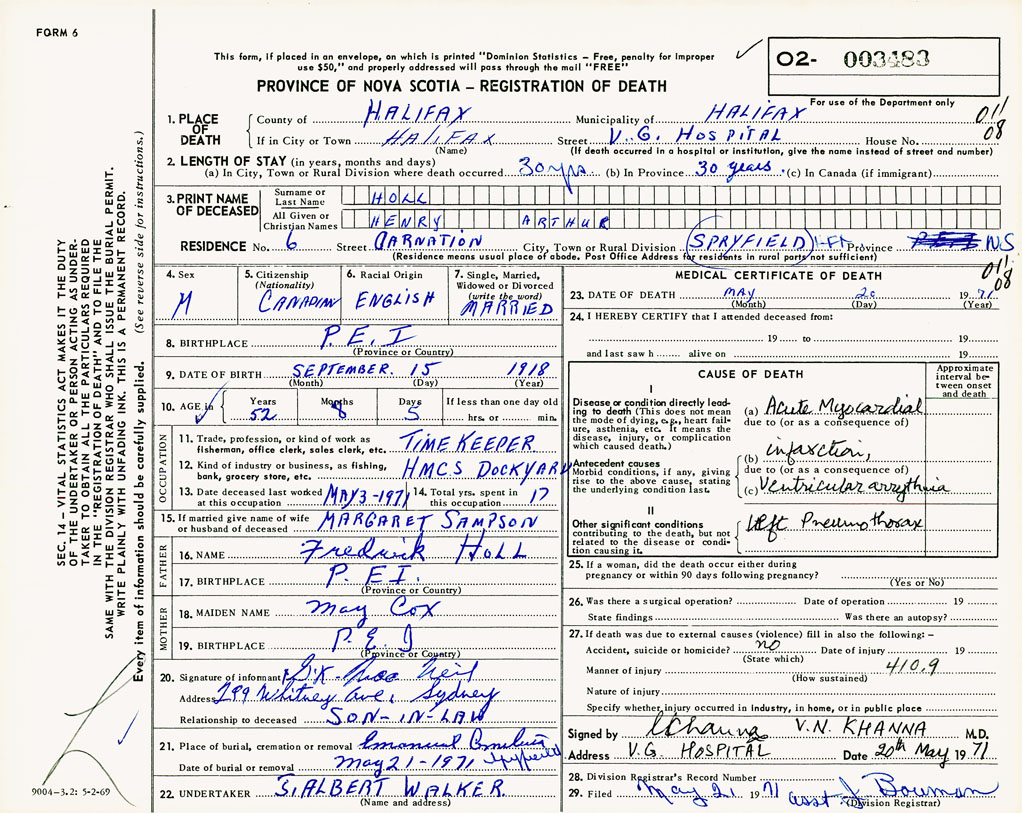 FORM 6
This form, if placed in an envelope, on which is printed "Dominion Statistics – Free, penalty for improper
use $50," and properly addressed will pass through the mail "FREE"
02- 003483
PROVINCE OF NOVA SCOTIA – REGISTRATION OF DEATH
For use of the Department only
011
08
1. PLACE OF DEATH
County of HALIFAX Municipality of HALIFAX
If in City or Town HALIFAX Street V.G. HOSPITAL House No.
(Name) (If death occurred in a hospital or institution, give the name instead of street and number)
2. LENGTH OF STAY (in years, months and days)
(a) In City, Town or Rural Division where death occurred 30 yrs (b) In Province 30 years (c) In Canada (if immigrant)
3. PRINT NAME OF DECEASED
Surname or Last Name HOLL
All Given or Christian Names HENRY ARTHUR
RESIDENCE No. 6 Street CARNATION City, Town or Rural Division SPRYFIELD Province N.S
(Residence means usual place of abode. Post Office Address for residents in rural parts not sufficient)
4. Sex
M
5. Citizenship
(Nationality)
CANADIAN
6. Racial Origin
ENGLISH
7. Single, Married,
Widowed or Divorced
(write the word)
MARRIED
8. BIRTHPLACE P.E.I
(Province or Country)
9. DATE OF BIRTH SEPTEMBER 15 1918
(Month) (Day) (Year)
10. AGE in
Years 52
Months 8
Days 5
If less than one day old
hrs. or min.
OCCUPATION
11. Trade, profession, or kind of work as
fisherman, office clerk, sales clerk, etc. TIME KEEPER
12. Kind of industry or business, as fishing,
bank, grocery store, etc. HMCS DOCKYARD
13. Date deceased last worked
at this occupation MAY 3-1971
14. Total yrs. spent in
this occupation 17
15. If married give name of wife
or husband of deceased MARGARET SAMPSON
FATHER
16. NAME Fredrick HOLL
17. BIRTHPLACE P.E.I.
(Province or Country)
MOTHER
18. MAIDEN NAME May Cox
19. BIRTHPLACE P.E.I
(Province or Country)
20. Signature of informant
Address 299 Whitney Ave, Sydney
Relationship to deceased SON-IN-LAW
21. Place of burial, cremation or removal
Date of burial or removal May 21-1971
22. UNDERTAKER S. ALBERT WALKER
(Name and address)
MEDICAL CERTIFICATE OF DEATH
011
08
23. DATE OF DEATH MAY 20 1971
(Month) (Day) (Year)
24. I HEREBY CERTIFY that I attended deceased from:
19 to 19
and last saw h alive on 19
CAUSE OF DEATH
Approximate
interval be-
tween onset
and death
I
Disease or condition directly lead-
ing to death (This does not mean
the mode of dying, e.g., heart fail-
ure, asthenia, etc. It means the
disease, injury, or complication
which caused death.)
(a) Acute Myocardial
due to (or as a consequence of)
Antecedent causes
Morbid conditions, if any, giving
rise to the above cause, stating
the underlying condition last.
(b) infaxction,
due to (or as a consequence of)
(c) Ventricular arrythmia
II
Other significant conditions
contributing to the death, but not
related to the disease or condi-
tion causing it.
Left Pneumothorax
25. If a woman, did the death occur either during
pregnancy or within 90 days following pregnancy?
(Yes or No)
26. Was there a surgical operation? Date of operation 19
State findings Was there an autopsy?
27. If death was due to external causes (violence) fill in also the following: –
Accident, suicide or homicide? no Date of injury 19
(State which)
Manner of injury 410.9
(How sustained)
Nature of injury
Specify whether injury occurred in industry, in home, or in public place
Signed by V.N. KHANNA M.D.
Address V.G. HOSPITAL Date 20th May 1971
28. Division Registrar's Record Number
29. Filed May 21 1971 asst J. Bowman
(Division Registrar)
SEC. 14 – VITAL STATISTICS ACT MAKES IT THE DUTY
OF THE UNDERTAKER OR PERSON ACTING AS UNDER-
TAKER TO OBTAIN ALL THE PARTICULARS REQUIRED
IN THE "REGISTRATION OF DEATH" AND TO FILE THE
SAME WITH THE DIVISION REGISTRAR WHO SHALL ISSUE THE BURIAL PERMIT.
WRITE PLAINLY WITH UNFADING INK. THIS IS A PERMANENT RECORD.
Every item of information should be carefully supplied. (See reverse side for instructions.)
9004-3.2: 5-2-69